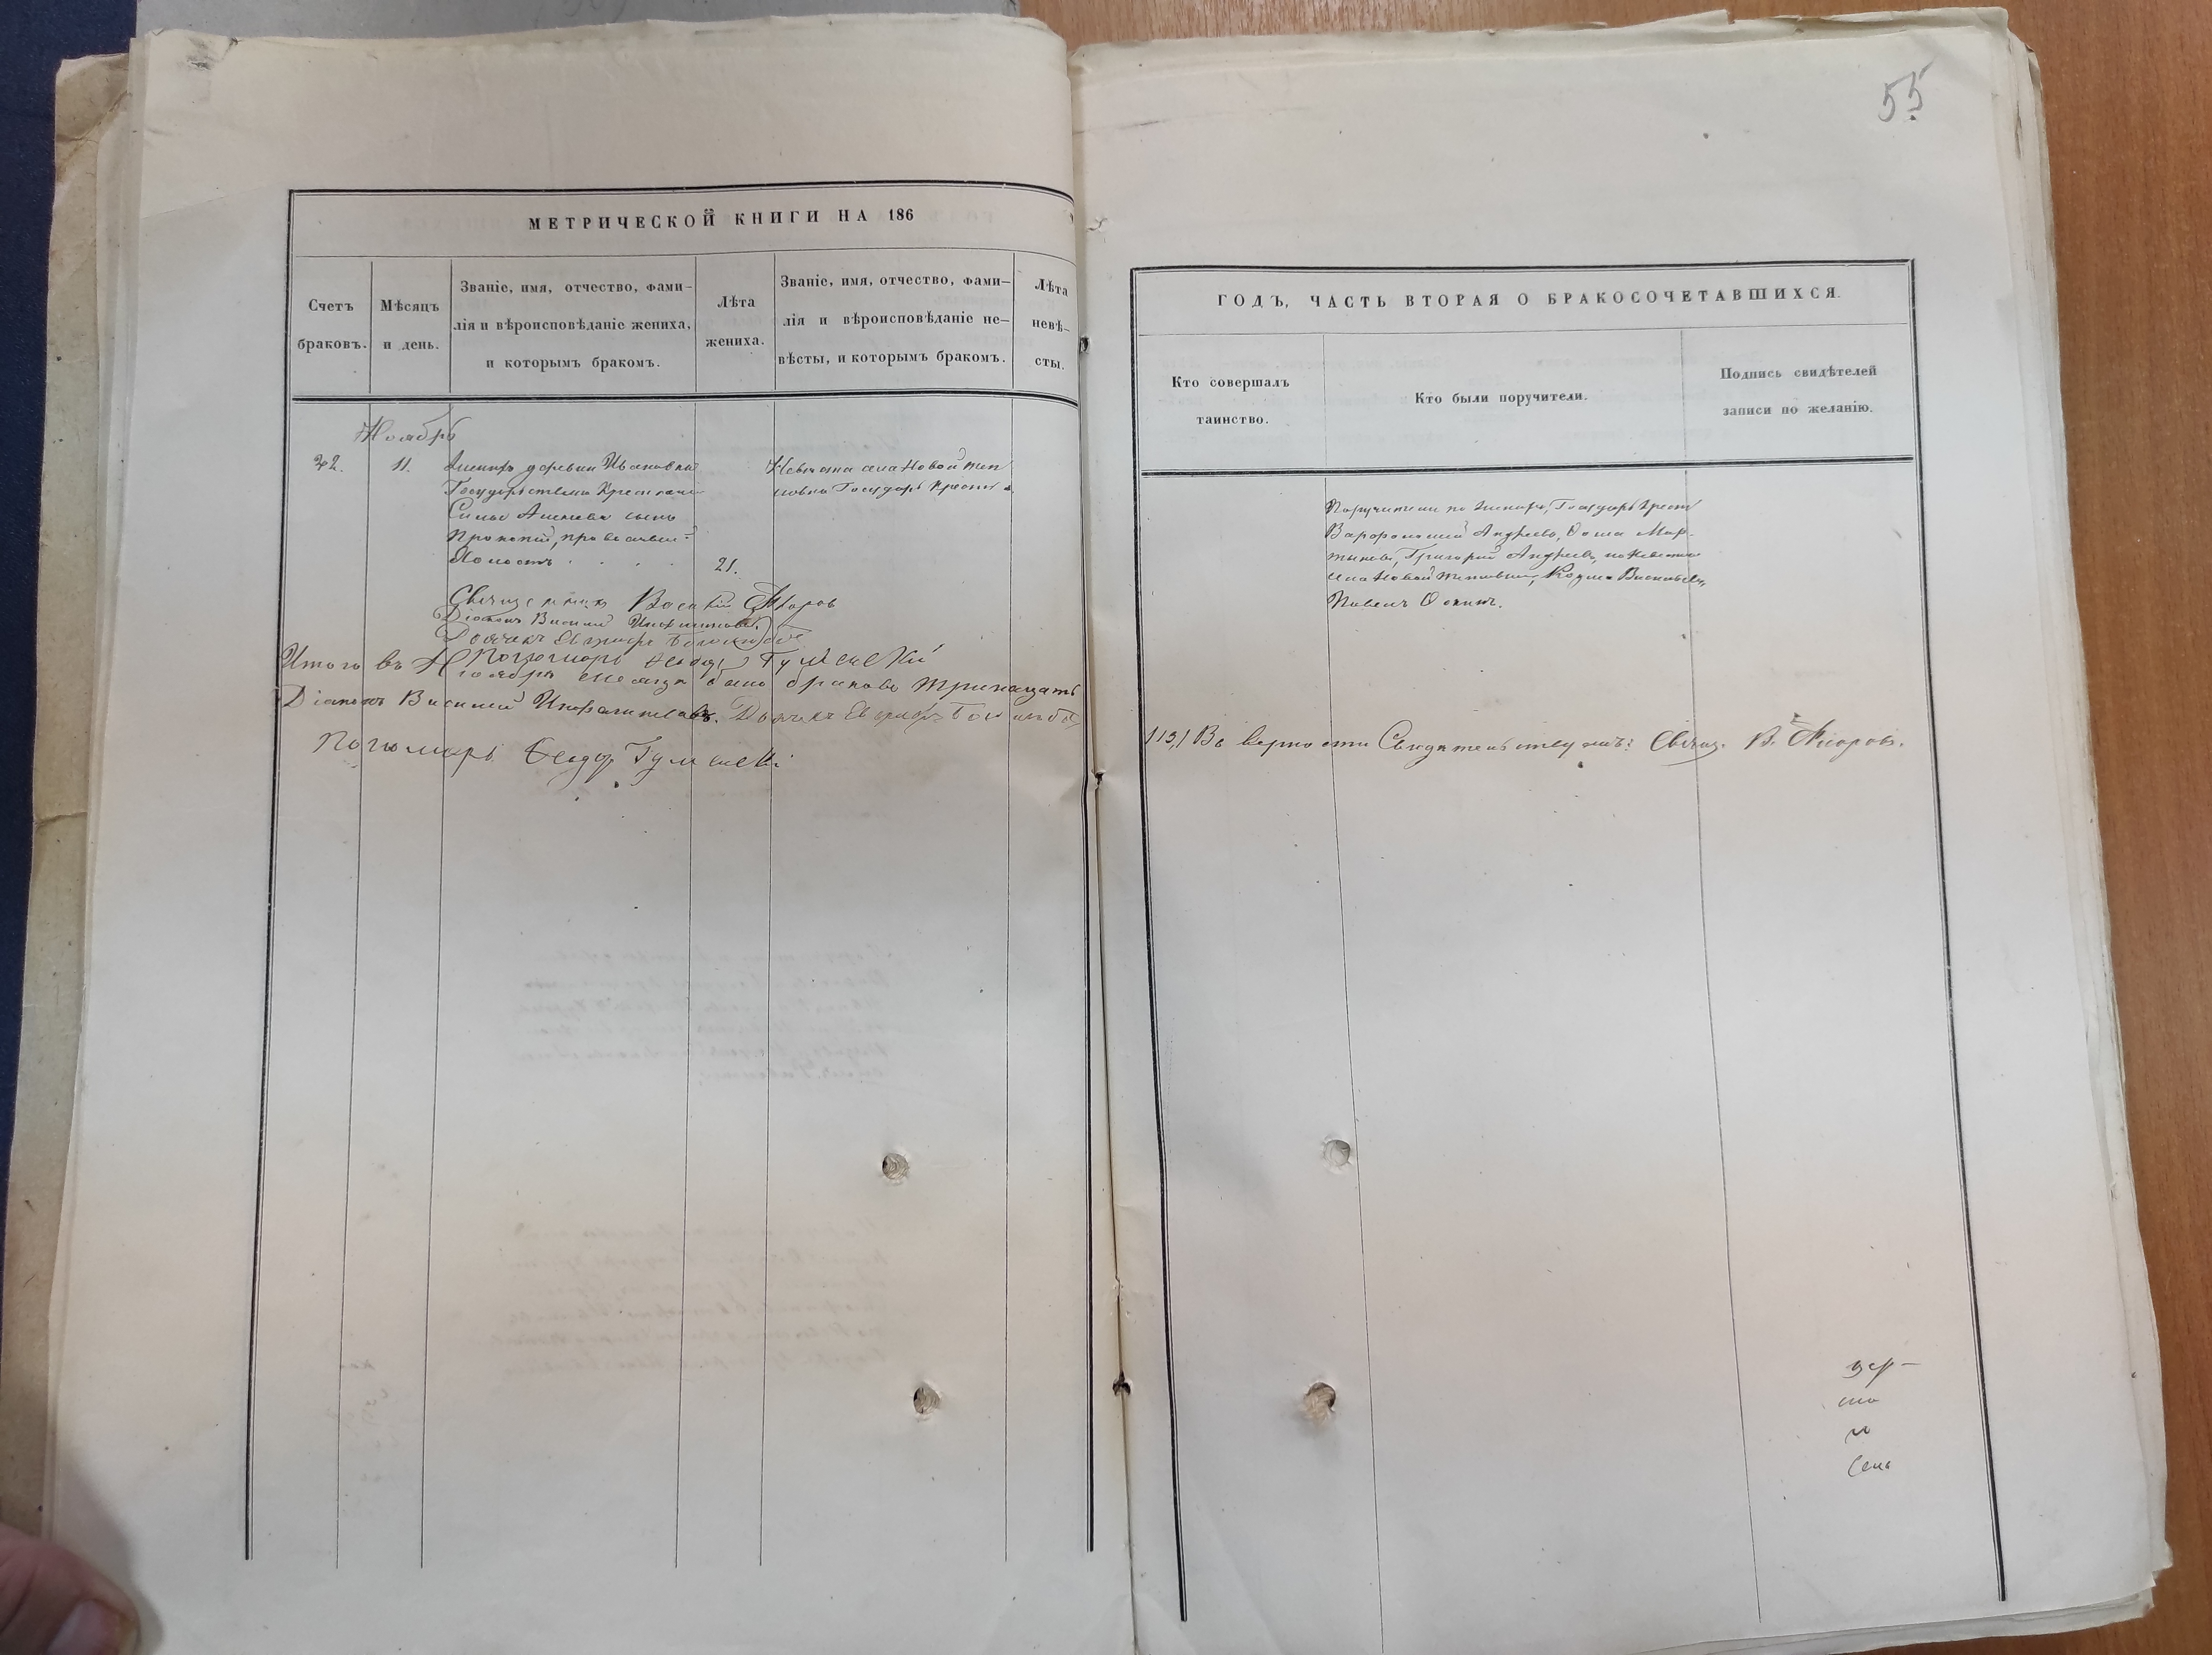 55
МЕТРИЧЕСКОЙ КНИГИ НА 186
Счетъ браковъ.
Мѣсяцъ и день.
Званіе, имя, отчество, фами-
лія и вѣроисповѣданіе жениха,
и которымъ бракомъ.
Лѣта жениха.
Званіе, имя, отчество, фами-
лія и вѣроисповѣданіе не-
вѣсты, и которымъ бракомъ.
Лѣта
невѣ-
сты.
Ноябрь
11.
Женихъ деревни Ивановки
Государствен Крестьян
Силы Алексѣева сынъ
Прокопій, православ
Холостъ
21.
Невѣста села Новой Теп
ловки Государ Крестья
Священникъ Василій
Діаконъ Василій
Дьячекъ
Пономарь Ѳеодор
Итого въ Ноябрѣ месяцѣ было браковъ тринацать
Діаконъ Василий Дьячекъ
Пономарь Ѳеодор
ГОДЪ, ЧАСТЬ ВТОРАЯ О БРАКОСОЧЕТАВШИХСЯ.
Кто совершалъ
таинство.
Кто были поручители.
Подпись свидѣтелей
записи по желанію.
Поручители по женихѣ, Государ Крест
Андреевъ, Фома Мар-
тыновъ, Григорій Андреевъ, по Невѣстѣ
села Новой Тепловки, Козма Васильевъ,
Павелъ Осипъ.
Въ верности Свидѣтельствуетъ: Свящ. В.